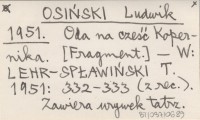 OSIŃSKI Ludwik
1951. Oda na cześć Koper-
nika. [Fragment.] — W:
LEHR-SPŁAWIŃSKI T.
1951: 332-333 (z rec.).
Zawiera urywek tatrz.